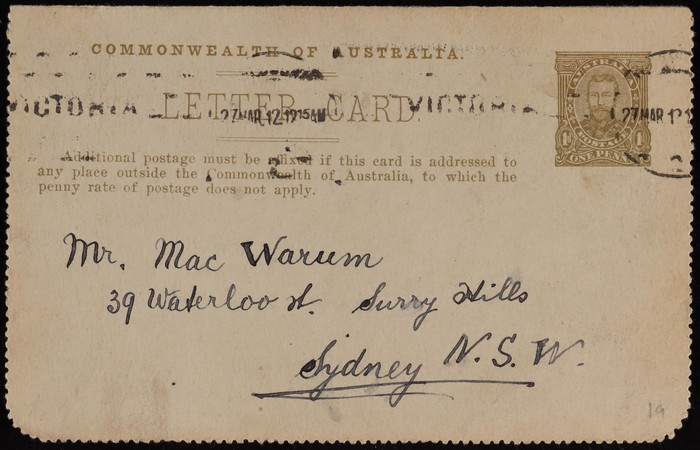 COMMONWEALTH OF AUSTRALIA.
LETTER CARD.
VICTORIA 27 MAR 12 1215AM VICTORIA 27 MAR 12
AUSTRALIA
POSTAGE
1D 1D
ONE PENNY
Additional postage must be affixed if this card is addressed to
any place outside the Commonwealth of Australia, to which the
penny rate of postage does not apply.
Mr. Mac Warum
39 Waterloo st. Surry Hills
Sydney N. S. W.
19